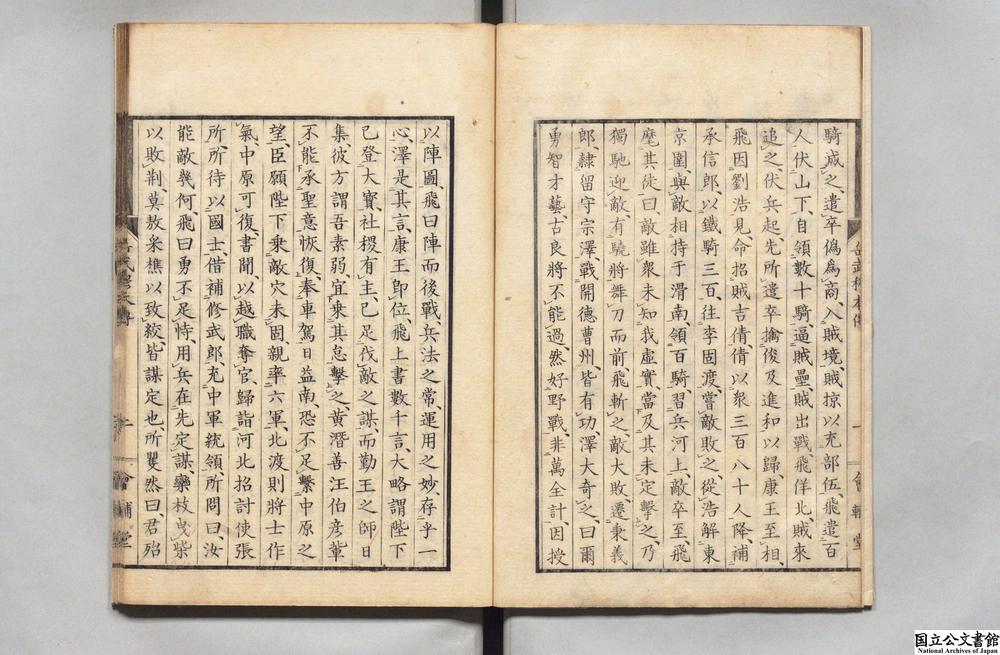 騎滅之、遣卒僞爲商、入賊境、賊掠以充部伍、飛遣百
人伏山下、自領數十騎逼賊壘、賊出戰、飛佯北賊來
追之伏兵起、先所遣卒擒俊及進和以歸康王至相、
飛因劉浩見命招賊吉倩倩以衆三百八十人降、補
承信郎、以鐵騎三百、往李固渡、嘗敵敗之、從浩解東
京圍、與敵相持于滑南領百騎、習兵河上、敵卒至、飛
麾其徒曰、敵雖衆未知我虛實、當及其未定擊之、乃
獨馳迎敵、有驍將舞刀而前、飛斬之、敵大敗、遷秉義
郎、隸留守宗澤、戰開德曹州、皆有功、澤大奇之、曰爾
勇智才藝、古良將不能過、然好野戰、非萬全計、因授
以陣圖、飛曰陣而後戰、兵法之常、運用之妙、存乎一
心、澤是其言、康王卽位、飛上書數千言、大略謂陛下
已登大寶、社稷有主、已足伐敵之謀、而勤王之師日
集、彼方謂吾素弱、宜乘其怠擊之、黄潛善汪伯彦輩
不能承聖意恢復、奉車駕日益南、恐不足繫中原之
望、臣願陛下乘敵穴未固、親率六軍、北渡則將士作
氣、中原可復、書聞、以越職奪官、歸詣河北招討使張
所、所待以國士、借補修武郎、充中軍統領、所問曰、汝
能敵幾何、飛曰勇不足恃、用兵在先定謀、欒枝曳柴
以敗荆、莫敖采樵以致絞、皆謀定也、所矍然曰、君殆
岳武穆本傳
一
會輔堂
岳武穆本傳
二
會輔堂
国立公文書館
National Archives of Japan